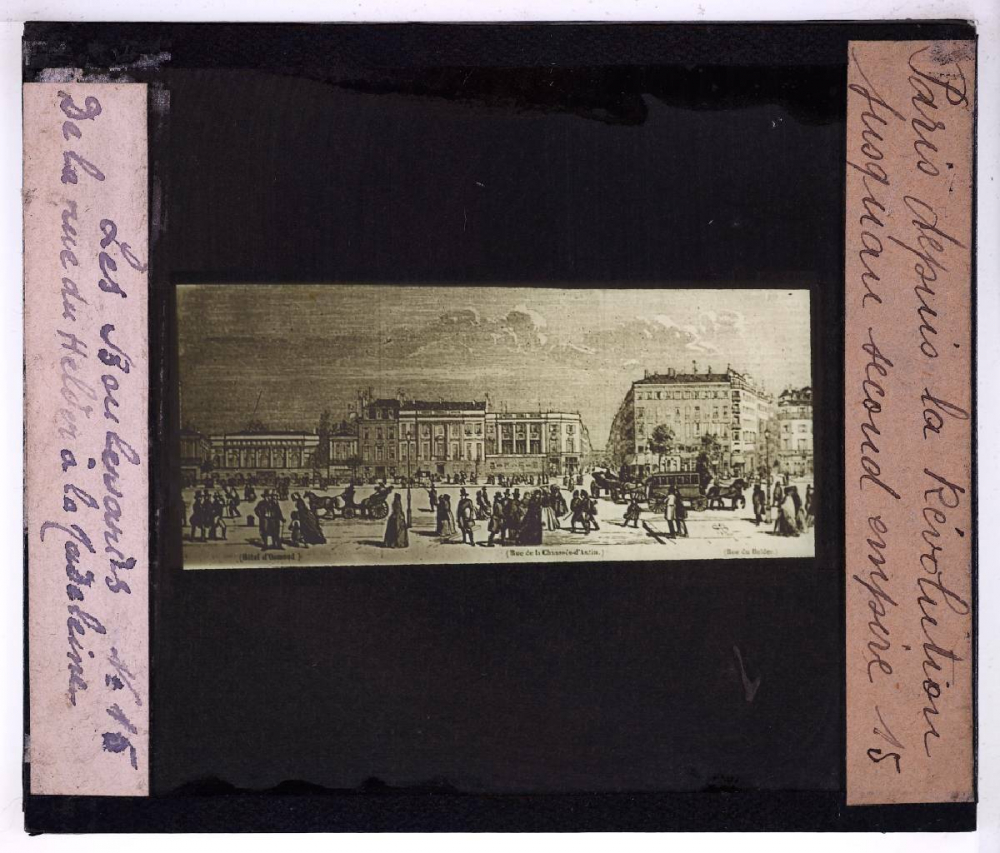 Les Boulevards Nº 15
De la rue du Helder à la Madeleine
(Hôtel d'Osmond.)
(Rue de la Chaussée-d'Antin.)
(Rue du Helder.)
Paris depuis la Révolution
jusqu'au second empire 15